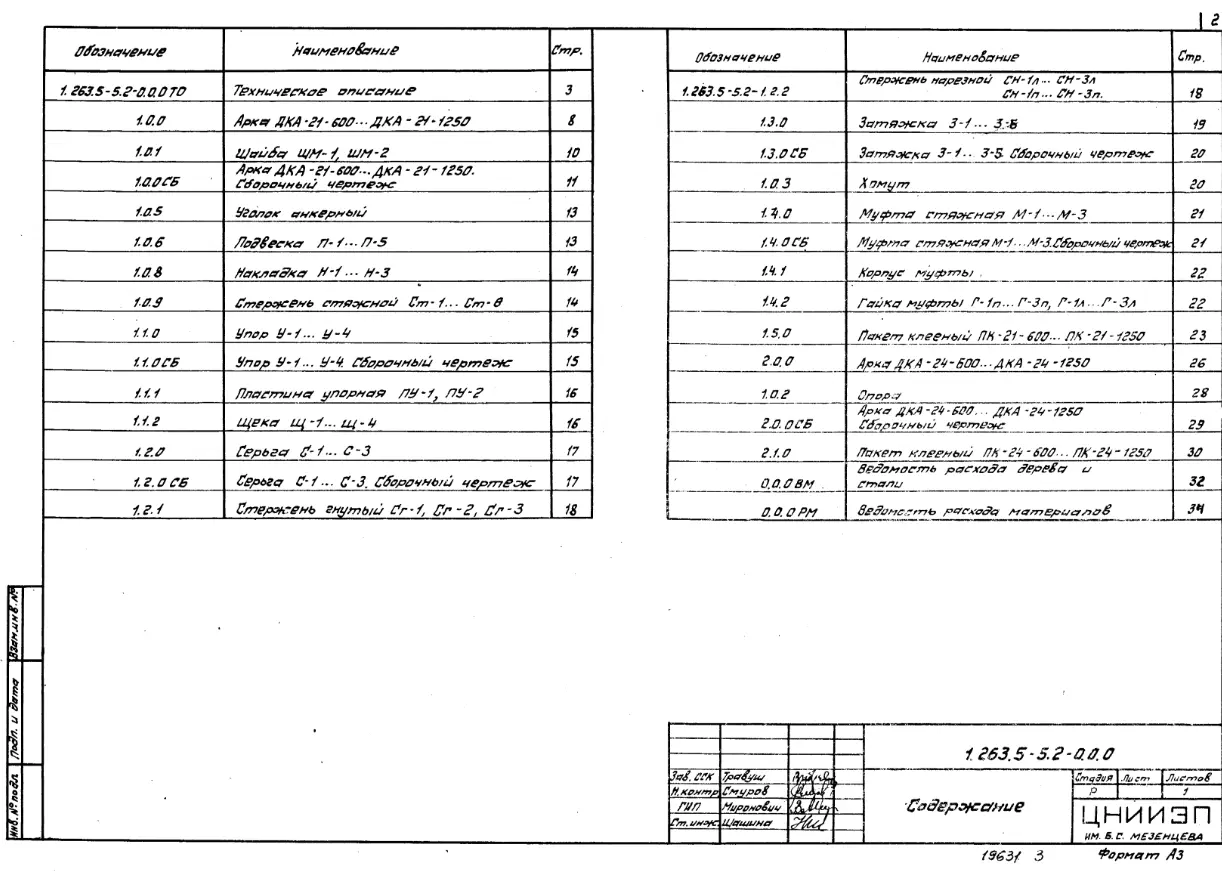 2
Обозначение Наименование Стр.
1.263.5-5.2-0.0.0 ТО Техническое описание 3
1.0.0 Арка ДКА-21-600...ДКА-21-1250 8
1.0.1 Шайба ШМ-1, ШМ-2 10
1.0.0 СБ Арка ДКА-21-600...ДКА-21-1250.
Сборочный чертеж 11
1.0.5 Уголок анкерный 13
1.0.6 Подвеска П-1...П-5 13
1.0.8 Накладка Н-1...Н-3 14
1.0.9 Стержень стяжной Ст-1...Ст-8 14
1.1.0 Упор У-1...У-4 15
1.1.0 СБ Упор У-1...У-4. Сборочный чертеж 15
1.1.1 Пластина упорная ПУ-1, ПУ-2 16
1.1.2 Щека Щ-1...Щ-4 16
1.2.0 Серьга С-1...С-3 17
1.2.0 СБ Серьга С-1...С-3. Сборочный чертеж 17
1.2.1 Стержень гнутый Сг-1, Сг-2, Сг-3 18
Обозначение Наименование Стр.
1.263.5-5.2-1.2.2 Стержень нарезной СН-1л...СН-3л
СН-1п...СН-3п. 18
1.3.0 Затяжка З-1...З-5 19
1.3.0 СБ Затяжка З-1...З-5. Сборочный чертеж 20
1.0.3 Хомут 20
1.4.0 Муфта стяжная М-1...М-3 21
1.4.0 СБ Муфта стяжная М-1...М-3. Сборочный чертеж 21
1.4.1 Корпус муфты 22
1.4.2 Гайка муфты Г-1п...Г-3п, Г-1л...Г-3л 22
1.5.0 Пакет клееный ПК-21-600...ПК-21-1250 23
2.0.0 Арка ДКА-24-600...ДКА-24-1250 26
1.0.2 Опора 28
2.0.0 СБ Арка ДКА-24-600...ДКА-24-1250
Сборочный чертеж 29
2.1.0 Пакет клееный ПК-24-600...ПК-24-1250 30
0.0.0 ВМ Ведомость расхода дерева и
стали 32
0.0.0 РМ Ведомость расхода материалов 34
Взам.инв.№
Подп. и дата
Инв.№ подл
1.263.5-5.2-0.0.0
Зав. ССК Травуш
Н.контр Смуров
ГИП Миронович
Ст.инж. Шашина
Содержание
Стадия Лист Листов
Р 1
ЦНИИЭП
ИМ. Б.С. МЕЗЕНЦЕВА
19631 3 Формат А3